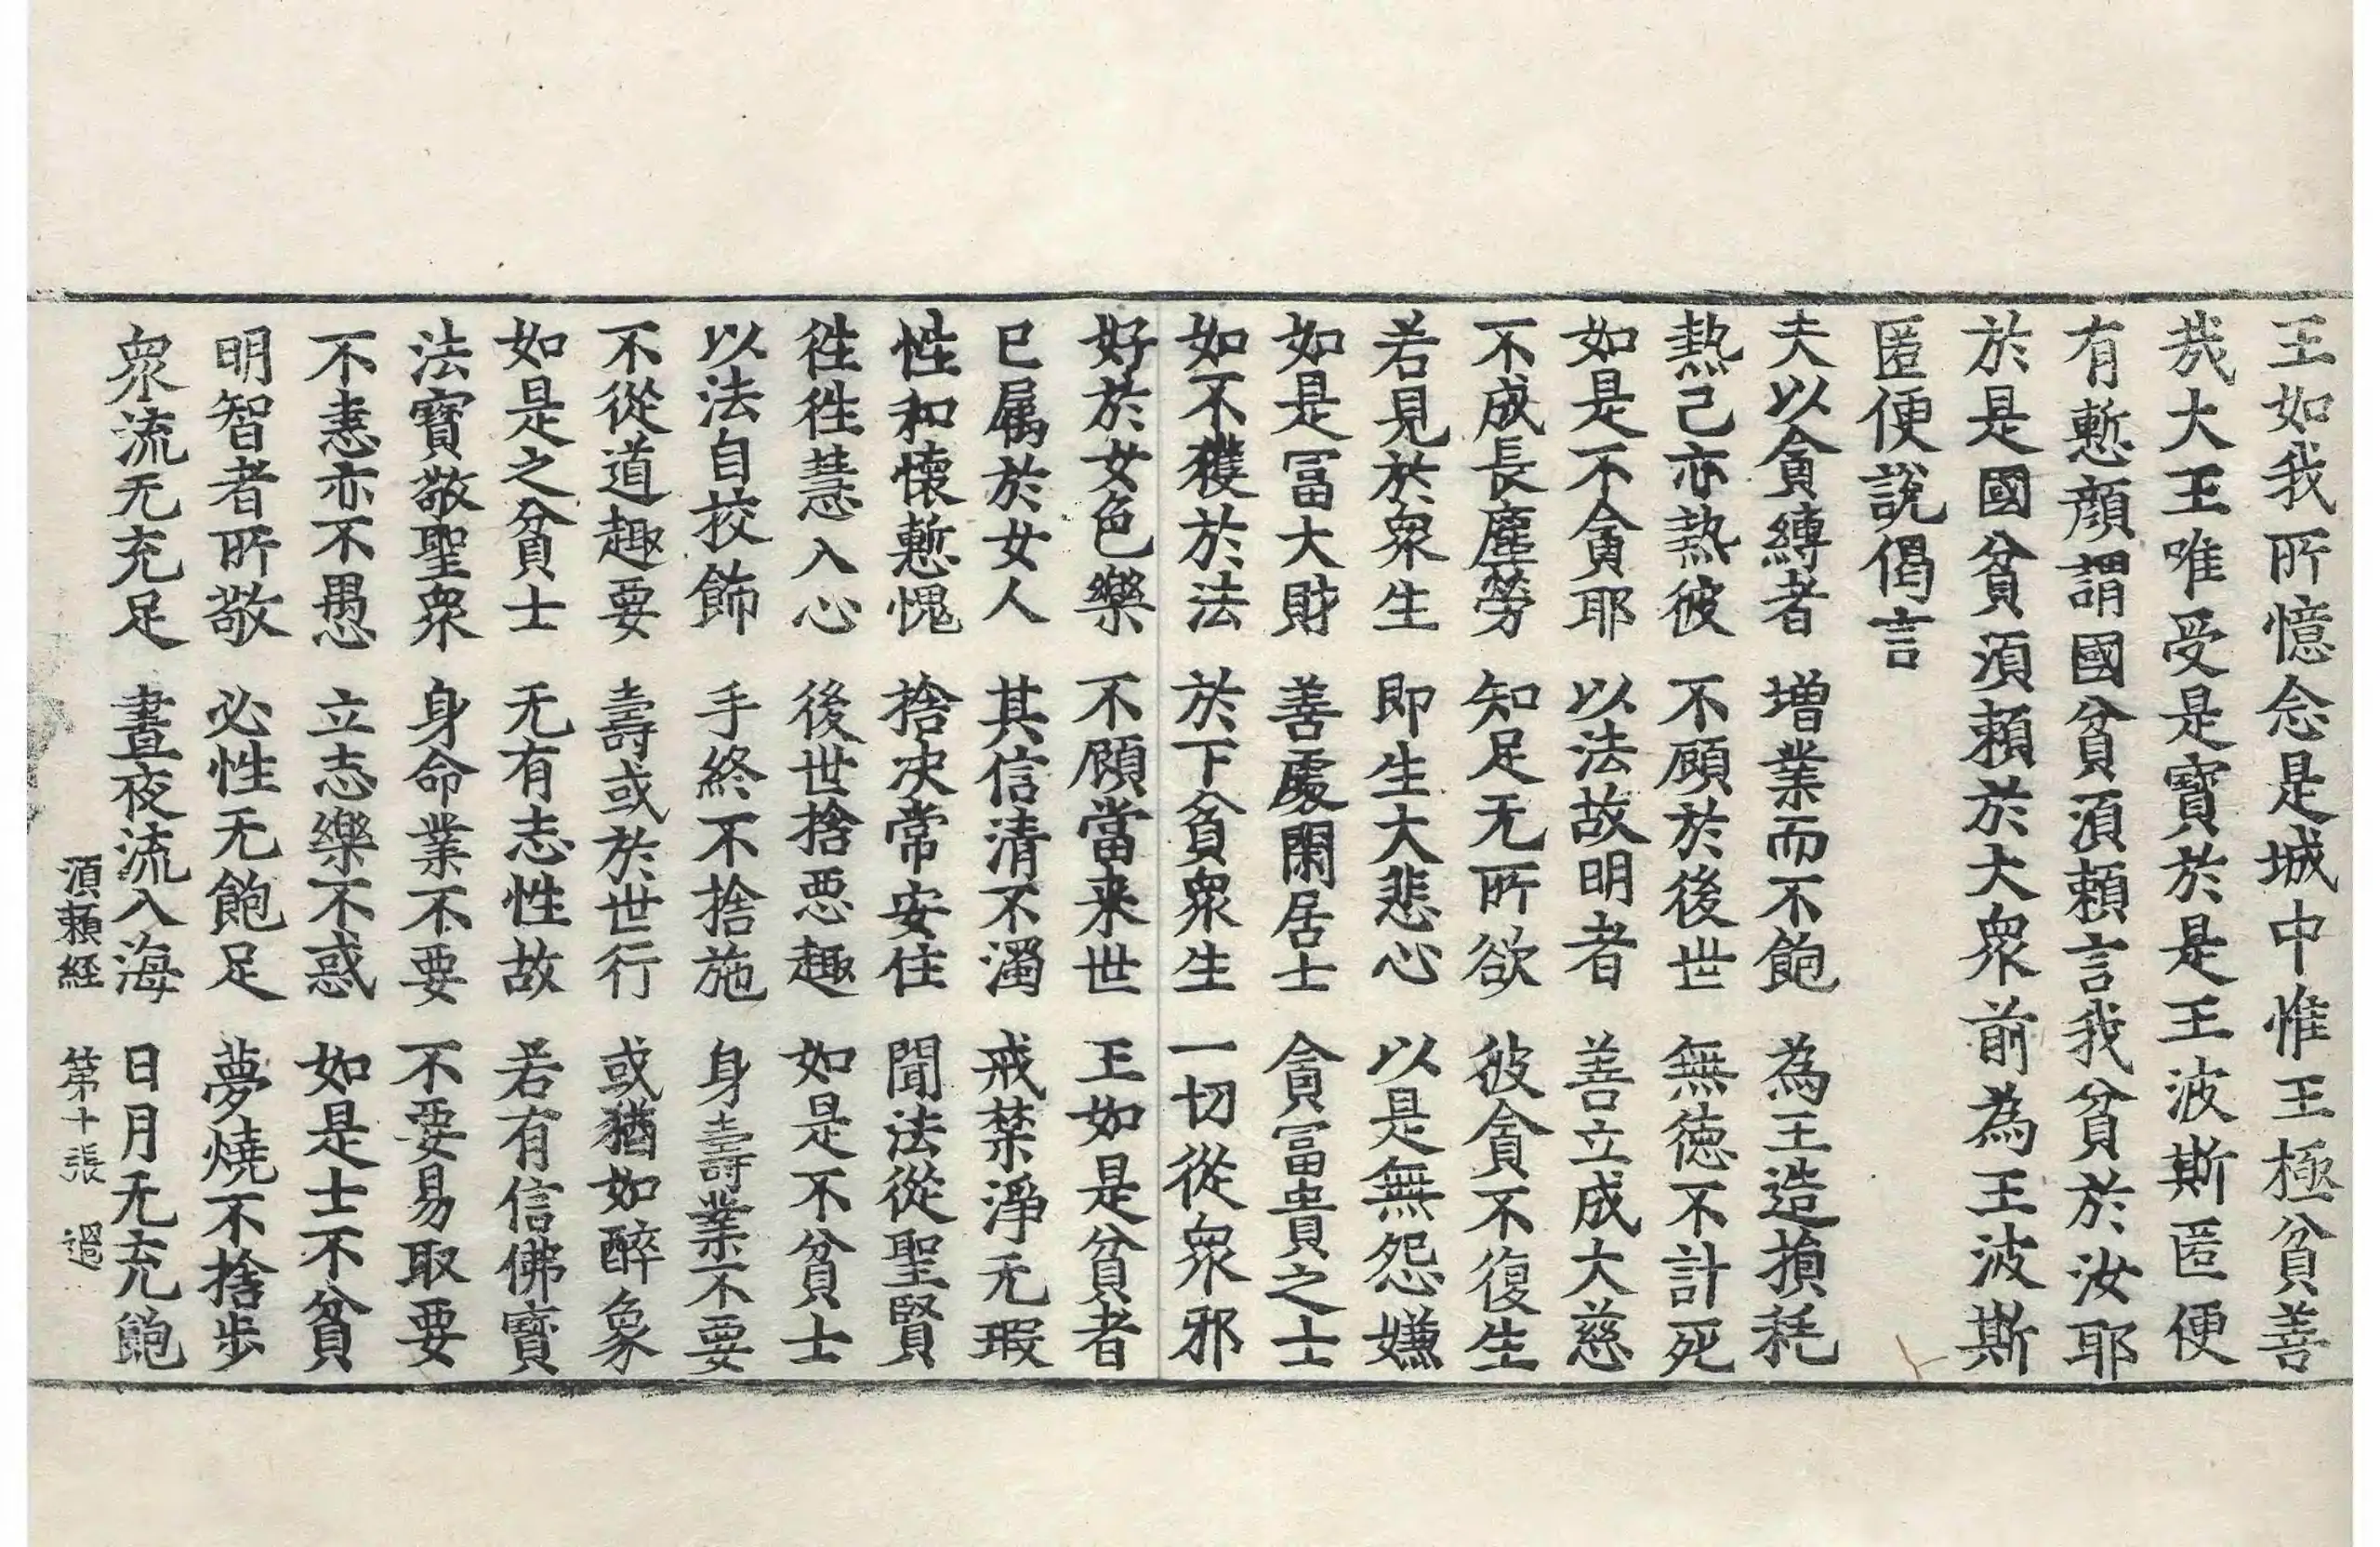 王如我所憶念是城中惟王極貧善
㢤大王唯受是寶於是王波斯匿便
有慙顔謂國貧湏頼言我貧於汝耶
於是國貧湏頼於大衆前為王波斯
匿便說偈言
夫以貪縛者 増業而不飽 為王造損耗
熱己亦熱彼 不顧於後世 無徳不計死
如是不貪耶 以法故明者 善立成大慈
不成長塵勞 知足无所欲 彼貪不復生
若見於衆生 即生大悲心 以是無怨嫌
如是冨大財 善處閑居士 貪冨貴之士
如不獲於法 於下貧衆生 一切從衆邪
好於女色樂 不顧當来世 王如是貧者
已属於女人 其信清不濁 戒禁淨无瑕
性和懐慙愧 捨决常安住 聞法從聖賢
徃徃慧入心 後世捨悪趣 如是不貧士
以法自挍飾 手終不捨施 身壽業不要
不從道趣要 壽或於世行 或猶如醉象
如是之貧士 无有志性故 若有信佛寶
法寶敬聖衆 身命業不要 不要易取要
不恚亦不愚 立志樂不惑 如是士不貧
明智者所敬 必性无飽足 夢燒不捨歩
衆流无充足 晝夜流入海 日月无充飽
湏頼経 第十張 𢌞